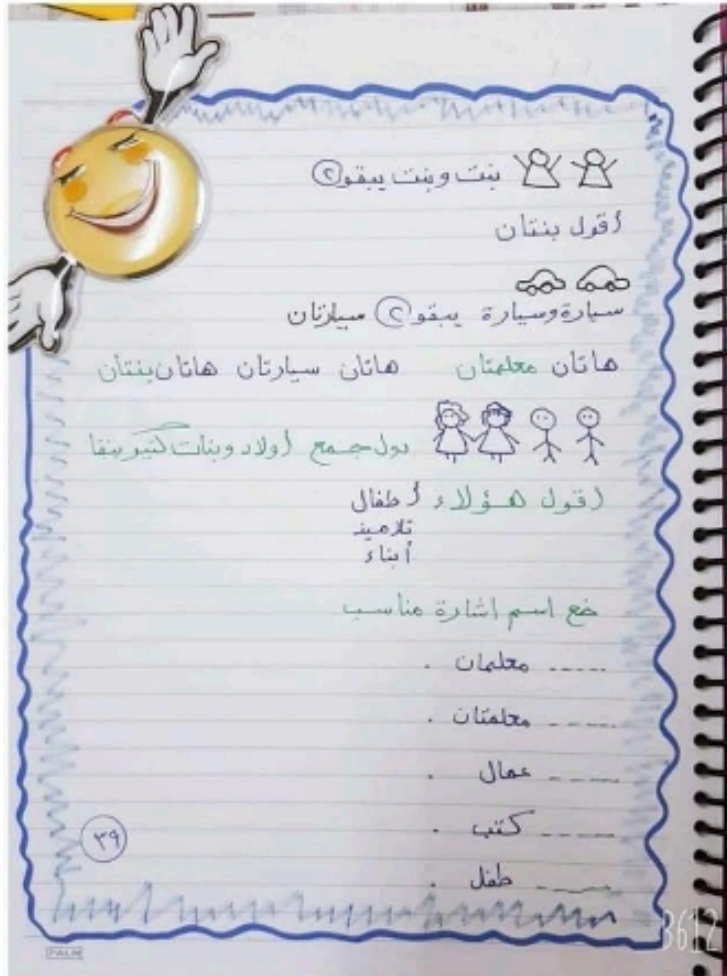 بنت وبنت يبقو ٢
أقول بنتان
سيارة وسيارة يبقو ٢ سيارتان
هاتان معلمتان هاتان سيارتان هاتان بنتان
دول جمع أولاد وبنات كتير
أقول هؤلاء أطفال
تلاميذ
أبناء
ضع اسم اشارة مناسب
----- معلمان .
----- معلمتان .
----- عمال .
----- كتب .
----- طفل .
٣٩
PALM
3612